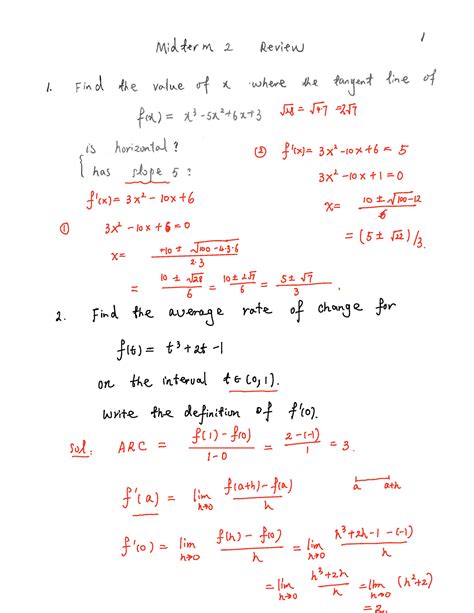 1
Midterm 2 Review
1. Find the value of x where the tangent line of
f(x) = x³-5x²+6x+3 √28 = √4·7 = 2√7
{ is horizontal?
has slope 5?
② f'(x) = 3x²-10x+6 = 5
3x²-10x+1=0
x = (10 ± √(100-12))/6
= (5 ± √22)/3.
f'(x) = 3x²-10x+6
① 3x²-10x+6=0
x = (+10 ± √(100-4·3·6))/(2·3)
= (10 ± √28)/6 = (10 ± 2√7)/6 = (5 ± √7)/3.
2. Find the average rate of change for
f(t) = t³+2t-1
on the interval t∈(0,1).
Write the definition of f'(0).
Sol: ARC = (f(1)-f(0))/(1-0) = (2-(-1))/1 = 3.
f'(a) = lim h→0 (f(a+h)-f(a))/h a a+h
f'(0) = lim h→0 (f(h)-f(0))/h = lim h→0 (h³+2h-1-(-1))/h
= lim h→0 (h³+2h)/h = lim h→0 (h²+2)
= 2.